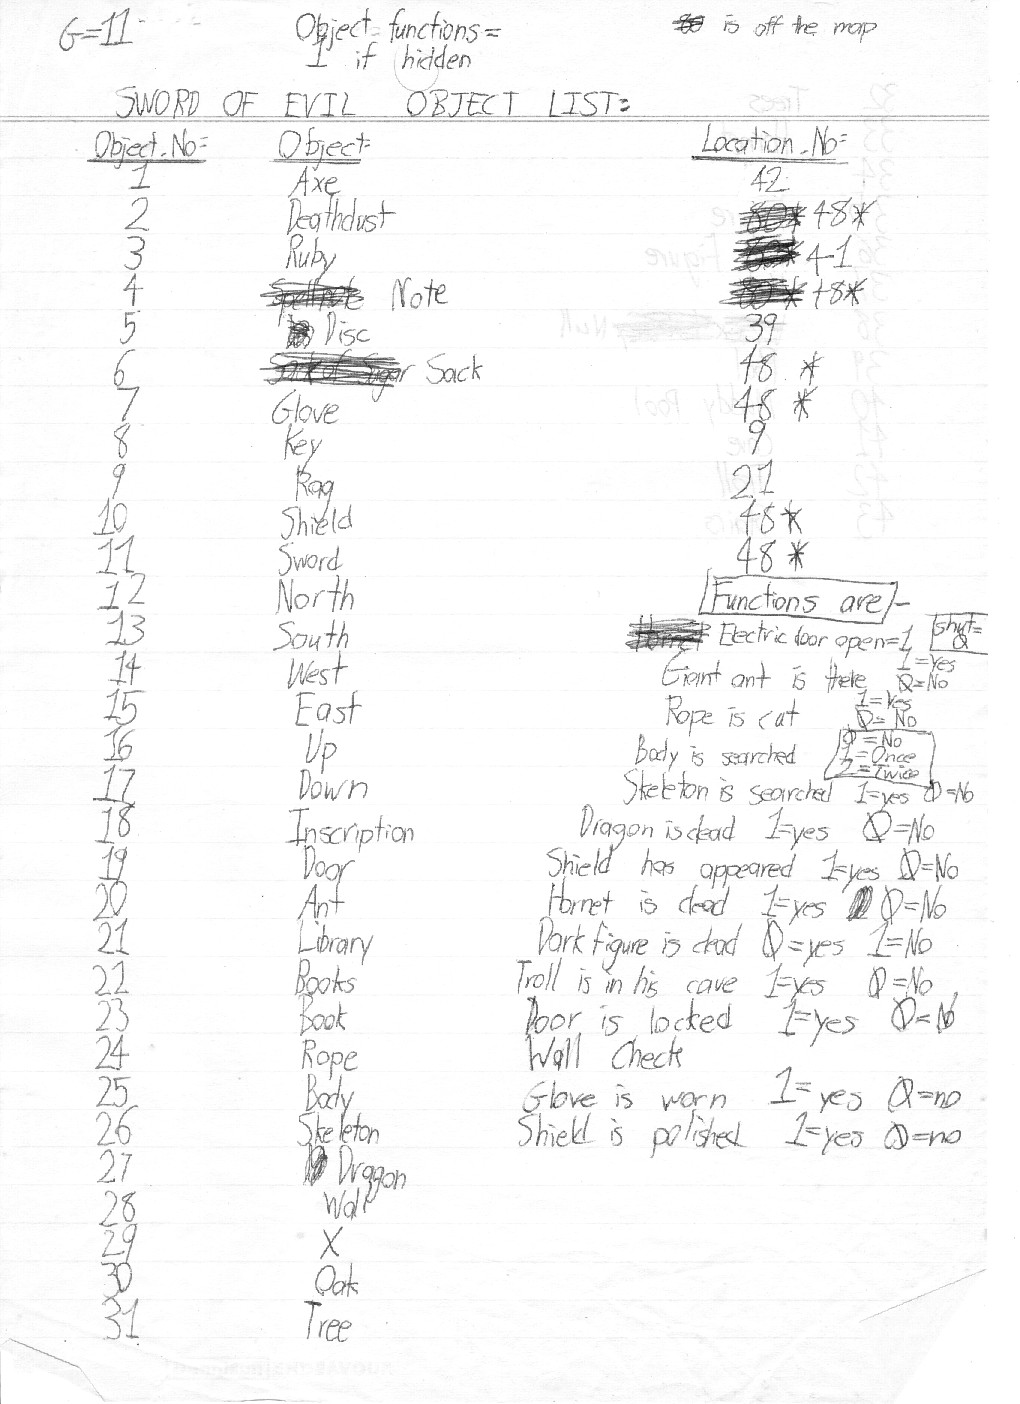 G=11 Object functions= is off the map
1 if hidden
SWORD OF EVIL OBJECT LIST=
Object.No= Object= Location.No=
1 Axe 42
2 Deathdust 48*
3 Ruby 4-1
4 Note 48*
5 Disc 39
6 Sack 48 *
7 Glove 48 *
8 Key 9
9 Rag 21
10 Shield 48*
11 Sword 48 *
12 North Functions are/-
13 South Electric door open=1 shut=0
14 West Giant ant is there 1=Yes 0=No
15 East Rope is cut 1=Yes 0=No
16 Up Body is searched 0=No 1=Once 2=Twice
17 Down Skeleton is searched 1=yes 0=No
18 Inscription Dragon is dead 1=yes 0=No
19 Door Shield has appeared 1=yes 0=No
20 Ant Hornet is dead 1=yes 0=No
21 Library Dark figure is dead 0=yes 1=No
22 Books Troll is in his cave 1=yes 0=No
23 Book Door is locked 1=yes 0=N
24 Rope Wall Check
25 Body Glove is worn 1=yes 0=no
26 Skeleton Shield is polished 1=yes 0=no
27 Dragon
28 Wall
29 X
30 Oak
31 Tree